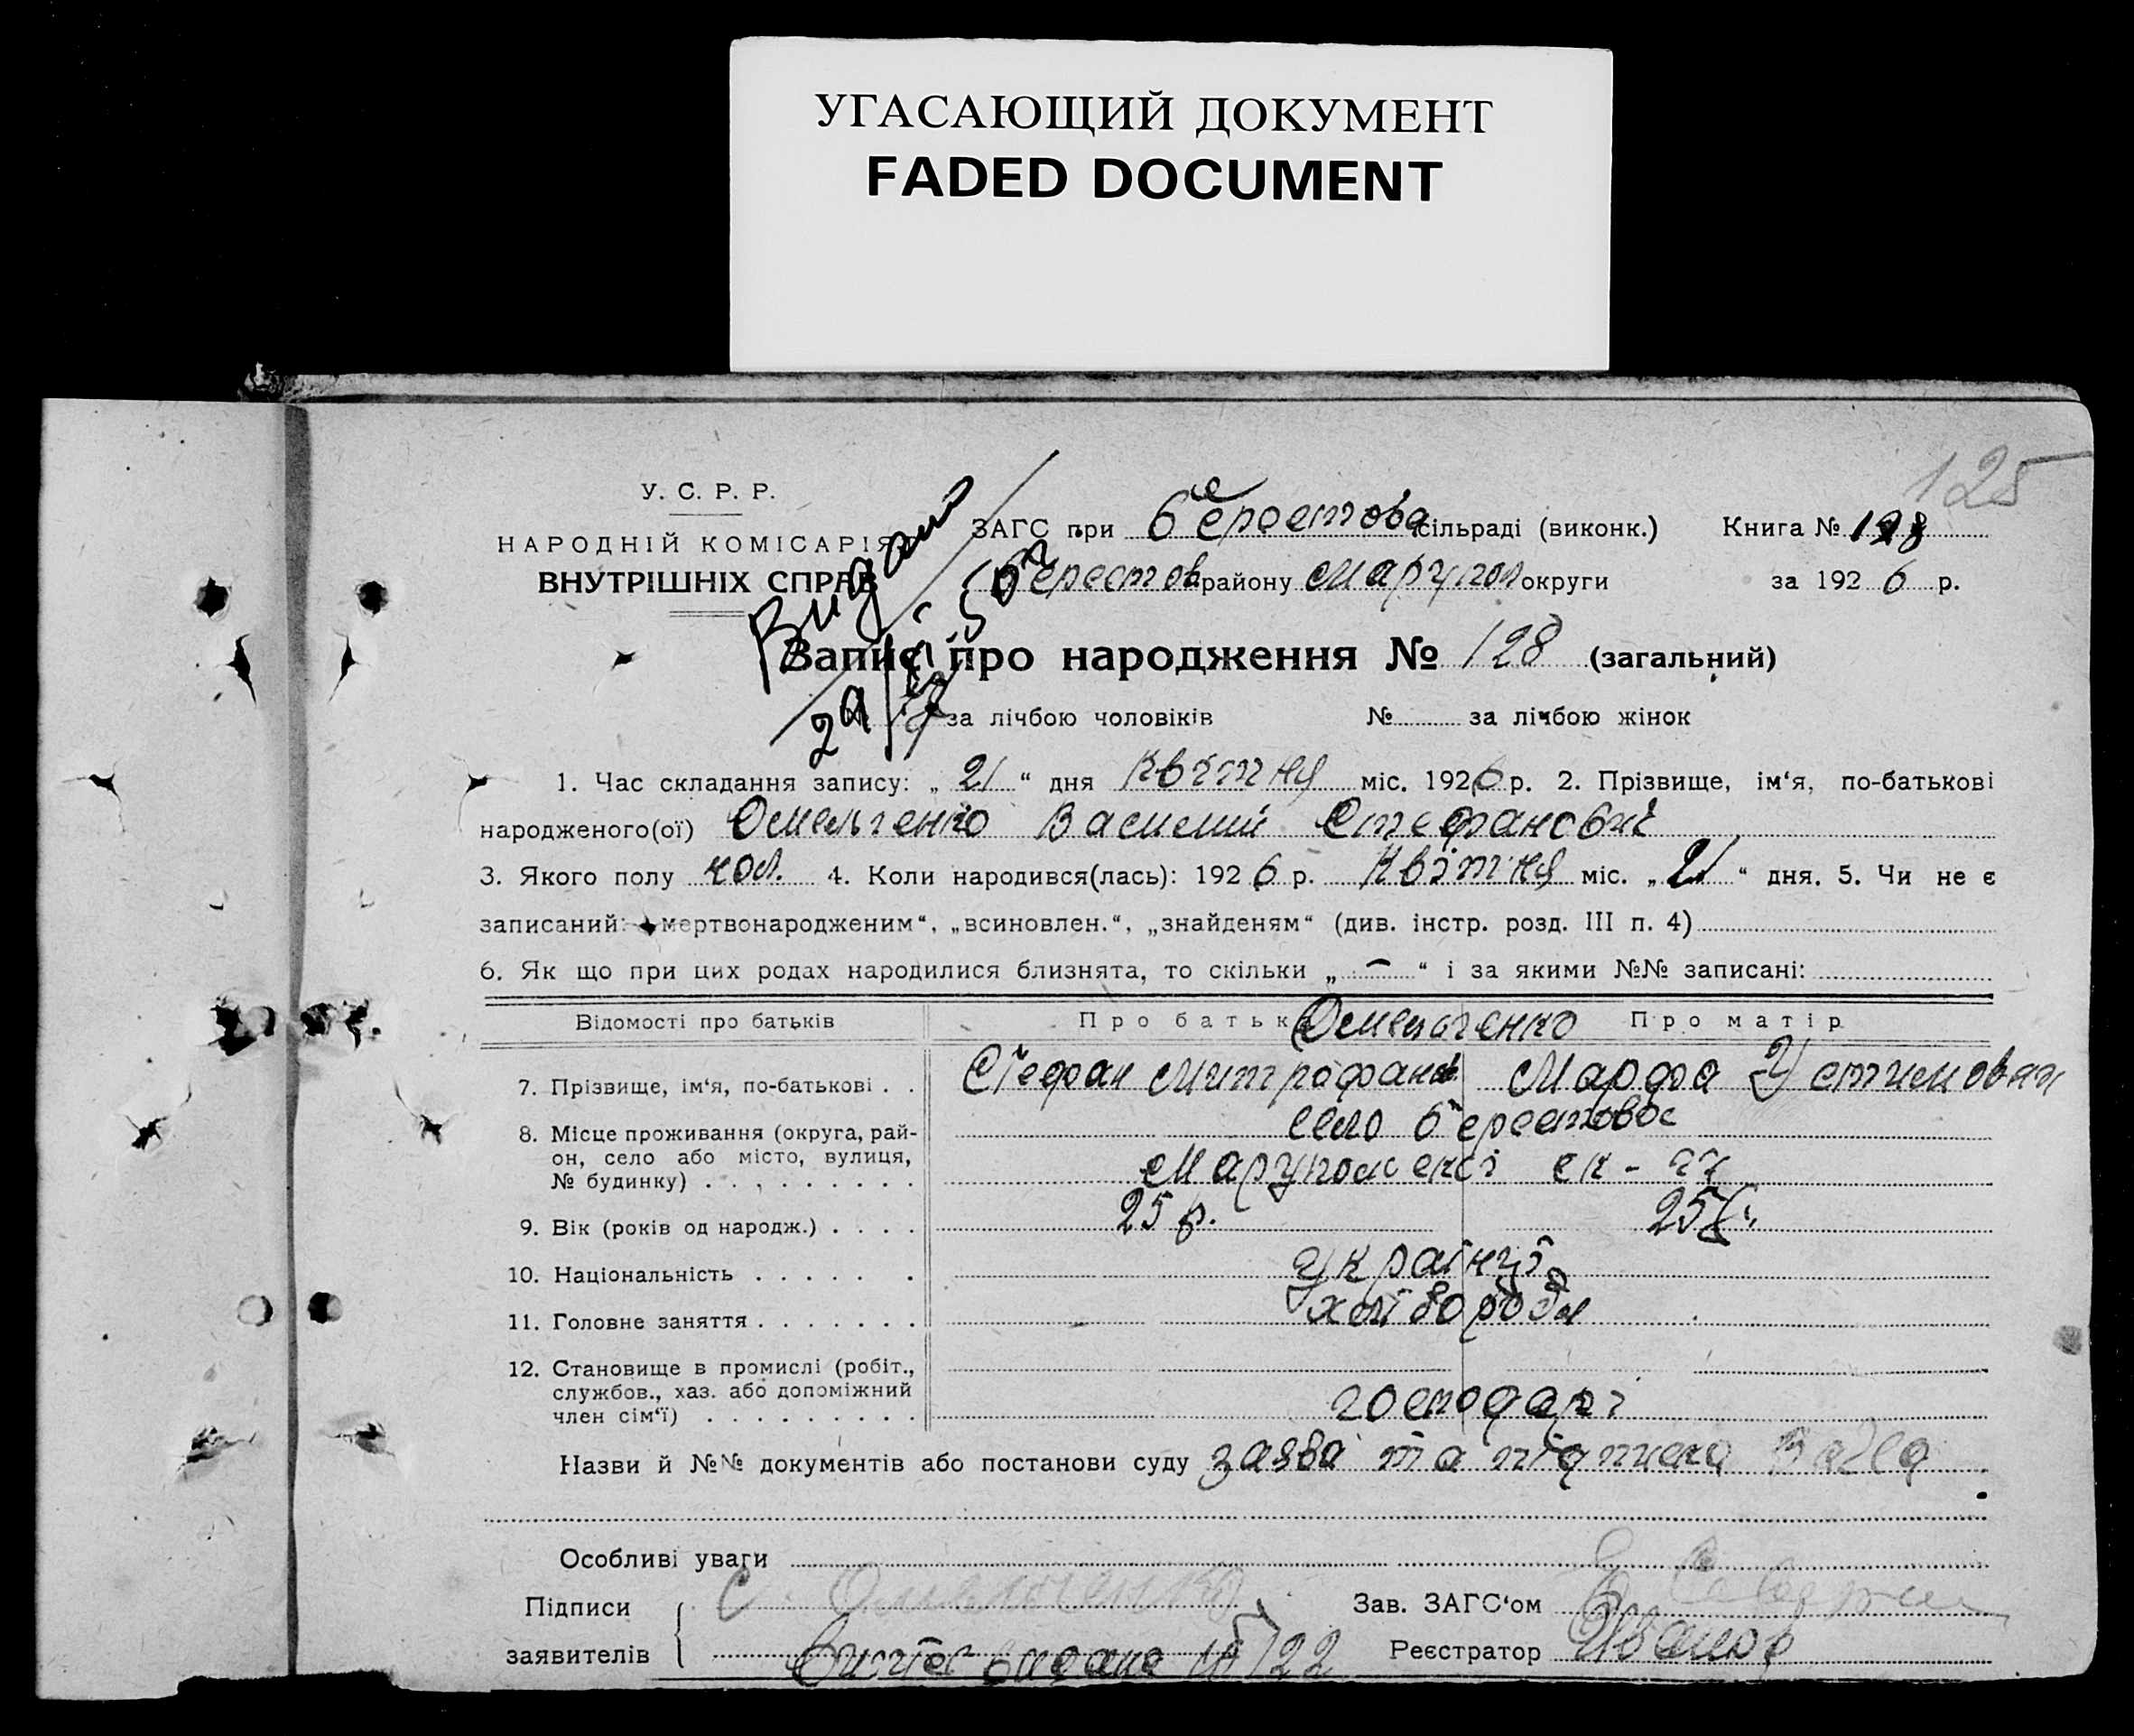 УГАСАЮЩИЙ ДОКУМЕНТ
FADED DOCUMENT
125
У. С. Р. Р.
НАРОДНІЙ КОМІСАРІЯТ
ВНУТРІШНІХ СПРАВ
Видано
ЗАГС при Берестова сільраді (виконк.) Книга № 128
Берестов району Марупол округи за 1926 р.
Запис про народження № 128 (загальний)
№ за лічбою чоловіків № за лічбою жінок
1. Час складання запису: „ 21 “ дня Квітня міс. 1926 р. 2. Прізвище, ім‘я, по-батькові
народженого(ої) Омельченко Василий Стефанович
3. Якого полу чол. 4. Коли народився(лась): 1926 р. Квітня міс. „ 21 “ дня. 5. Чи не є
записаний: „мертвонародженим“, „всиновлен.“, „знайденям“ (див. інстр. розд. III п. 4)
6. Як що при цих родах народилися близнята, то скільки „ — “ і за якими №№ записані:
Відомості про батьків Про батька Про матір
Омельченко
7. Прізвище, ім‘я, по-батькові . . Стефан Митрофанов Марфа Устимовна
8. Місце проживання (округа, рай-
он, село або місто, вулиця,
№ будинку) . . . . . . . . .
село Берестовос
9. Вік (років од народж.) . . . . 25 р. 25 р.
10. Національність . . . . . . українці
11. Головне заняття . . . . . . . хліборобы
12. Становище в промислі (робіт.,
службов., хаз. або допоміжний
член сім‘ї) . . . . . . . . . господарі
Назви й №№ документів або постанови суду заява та підписка
Особливі уваги
Підписи
заявителів
С. Омельченко
Зав. ЗАГС‘ом
Реєстратор